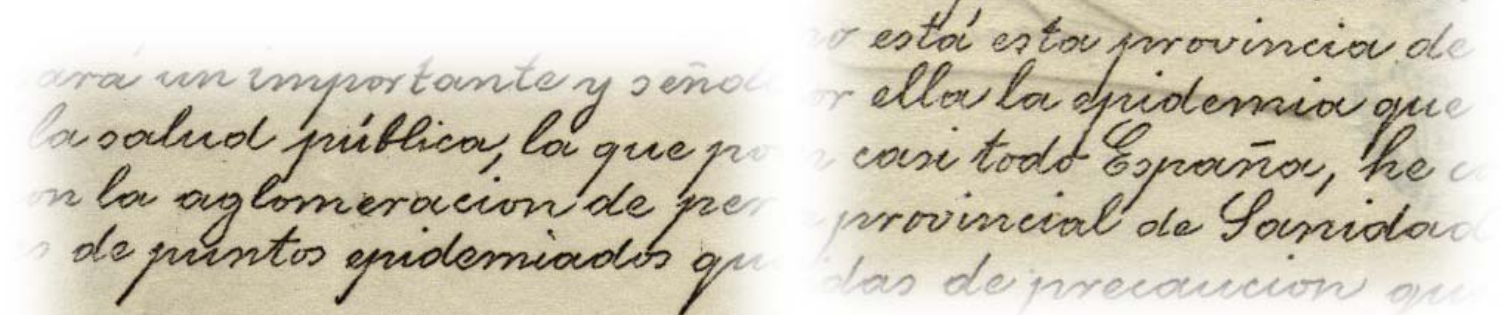 ará un importante y seña
la salud pública, la que po
on la aglomeracion de per
s de puntos epidemiados qu
no está esta provincia de
or ella la epidemia que
casi todo España, he c
provincial de Sanidad
das de precaucion qu